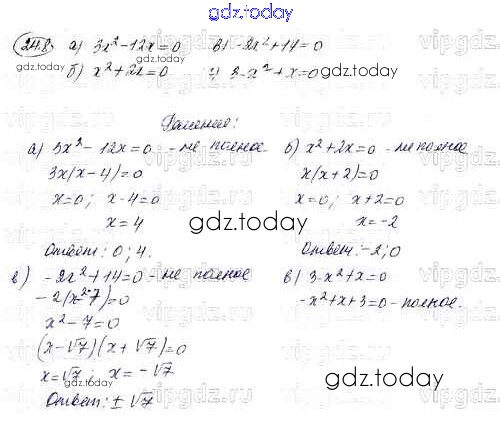 gdz.today
24.8 а) 3x²-12x=0 в) -2x²+14=0
б) x²+2x=0 г) 3-x²+x=0
gdz.today
Решение:
а) 3x²-12x=0 - не полное. б) x²+2x=0 - неполное
3x(x-4)=0 x(x+2)=0
x=0; x-4=0 x=0; x+2=0
x=4 x=-2
gdz.today
Ответ: 0; 4. Ответ: -2; 0
в) -2x²+14=0 - не полное в) 3-x²+x=0
-2(x²-7)=0 -x²+x+3=0 - полное.
x²-7=0
(x-√7)(x+√7)=0
x=√7; x=-√7
gdz.today
Ответ: ±√7